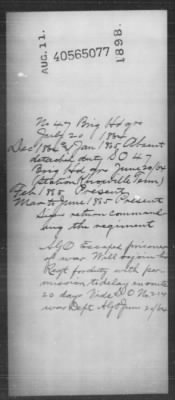 AUG. 11.
40565077
1898.
No 47 Brig Hdqrs
July 20 1864
Dec 1864 & Jan 1865 Absent
detached duty S O 47
Brig Hd qrs June 20/64
(Station Knoxville Tenn)
Feb 1865 Present
Mar to June 1865 Present
Signs return command
ing the regiment
AGO Escaped prisoner
of war Will rejoin his
Regt for duty with per
mission to delay en route
20 days Vide S O No 214
War Dept AGO June 20/64